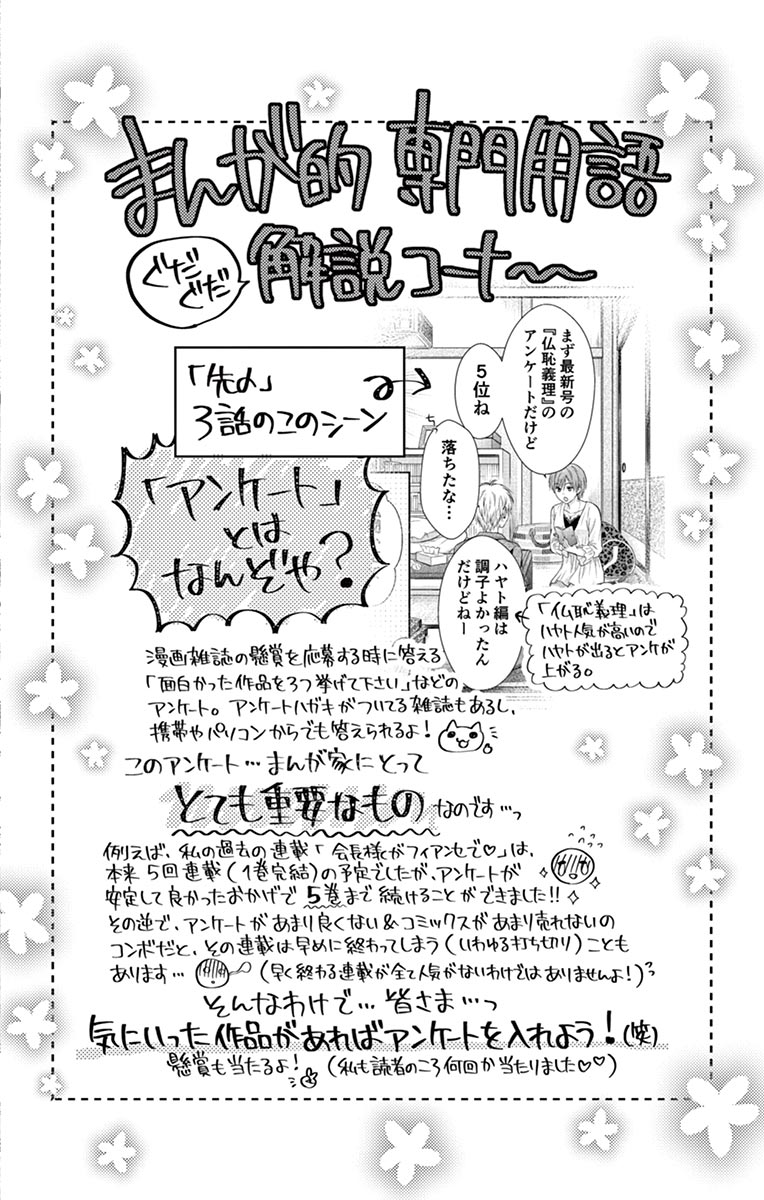 まんが的 専門用語
ぐだ
ぐだ
解説コーナ〜〜
「先♂」
3話のこのシーン
まず最新号の
『仏恥義理』の
アンケートだけど
5位ね
落ちたな…
ハヤト編は
調子よかったん
だけどねー
「アンケート」
とは
なんぞや?
「仏恥義理」は
ハヤト人気が高いので
ハヤトが出るとアンケが
上がる。
漫画雑誌の懸賞を応募する時に答える
「面白かった作品を3つ挙げて下さい」などの
アンケート。アンケートハガキがついてる雑誌もあるし、
携帯やパソコンからでも答えられるよ!
このアンケート…まんが家にとって
とても重要なもの なのです…っ
例えば、私の過去の連載「会長様がフィアンセで♡」は、
本来5回連載(1巻完結)の予定でしたが、アンケートが
安定して良かったおかげで5巻まで続けることができました!!
その逆で、アンケートがあまり良くない&コミックスがあまり売れないの
コンボだと、その連載は早めに終わってしまう(いわゆる打ち切り)ことも
あります… (早く終わる連載が全て人気がないわけではありませんよ!)
そんなわけで…皆さま…っ
気にいった作品があればアンケートを入れよう!(笑)
懸賞も当たるよ! (私も読者のころ何回か当たりました♡♡)